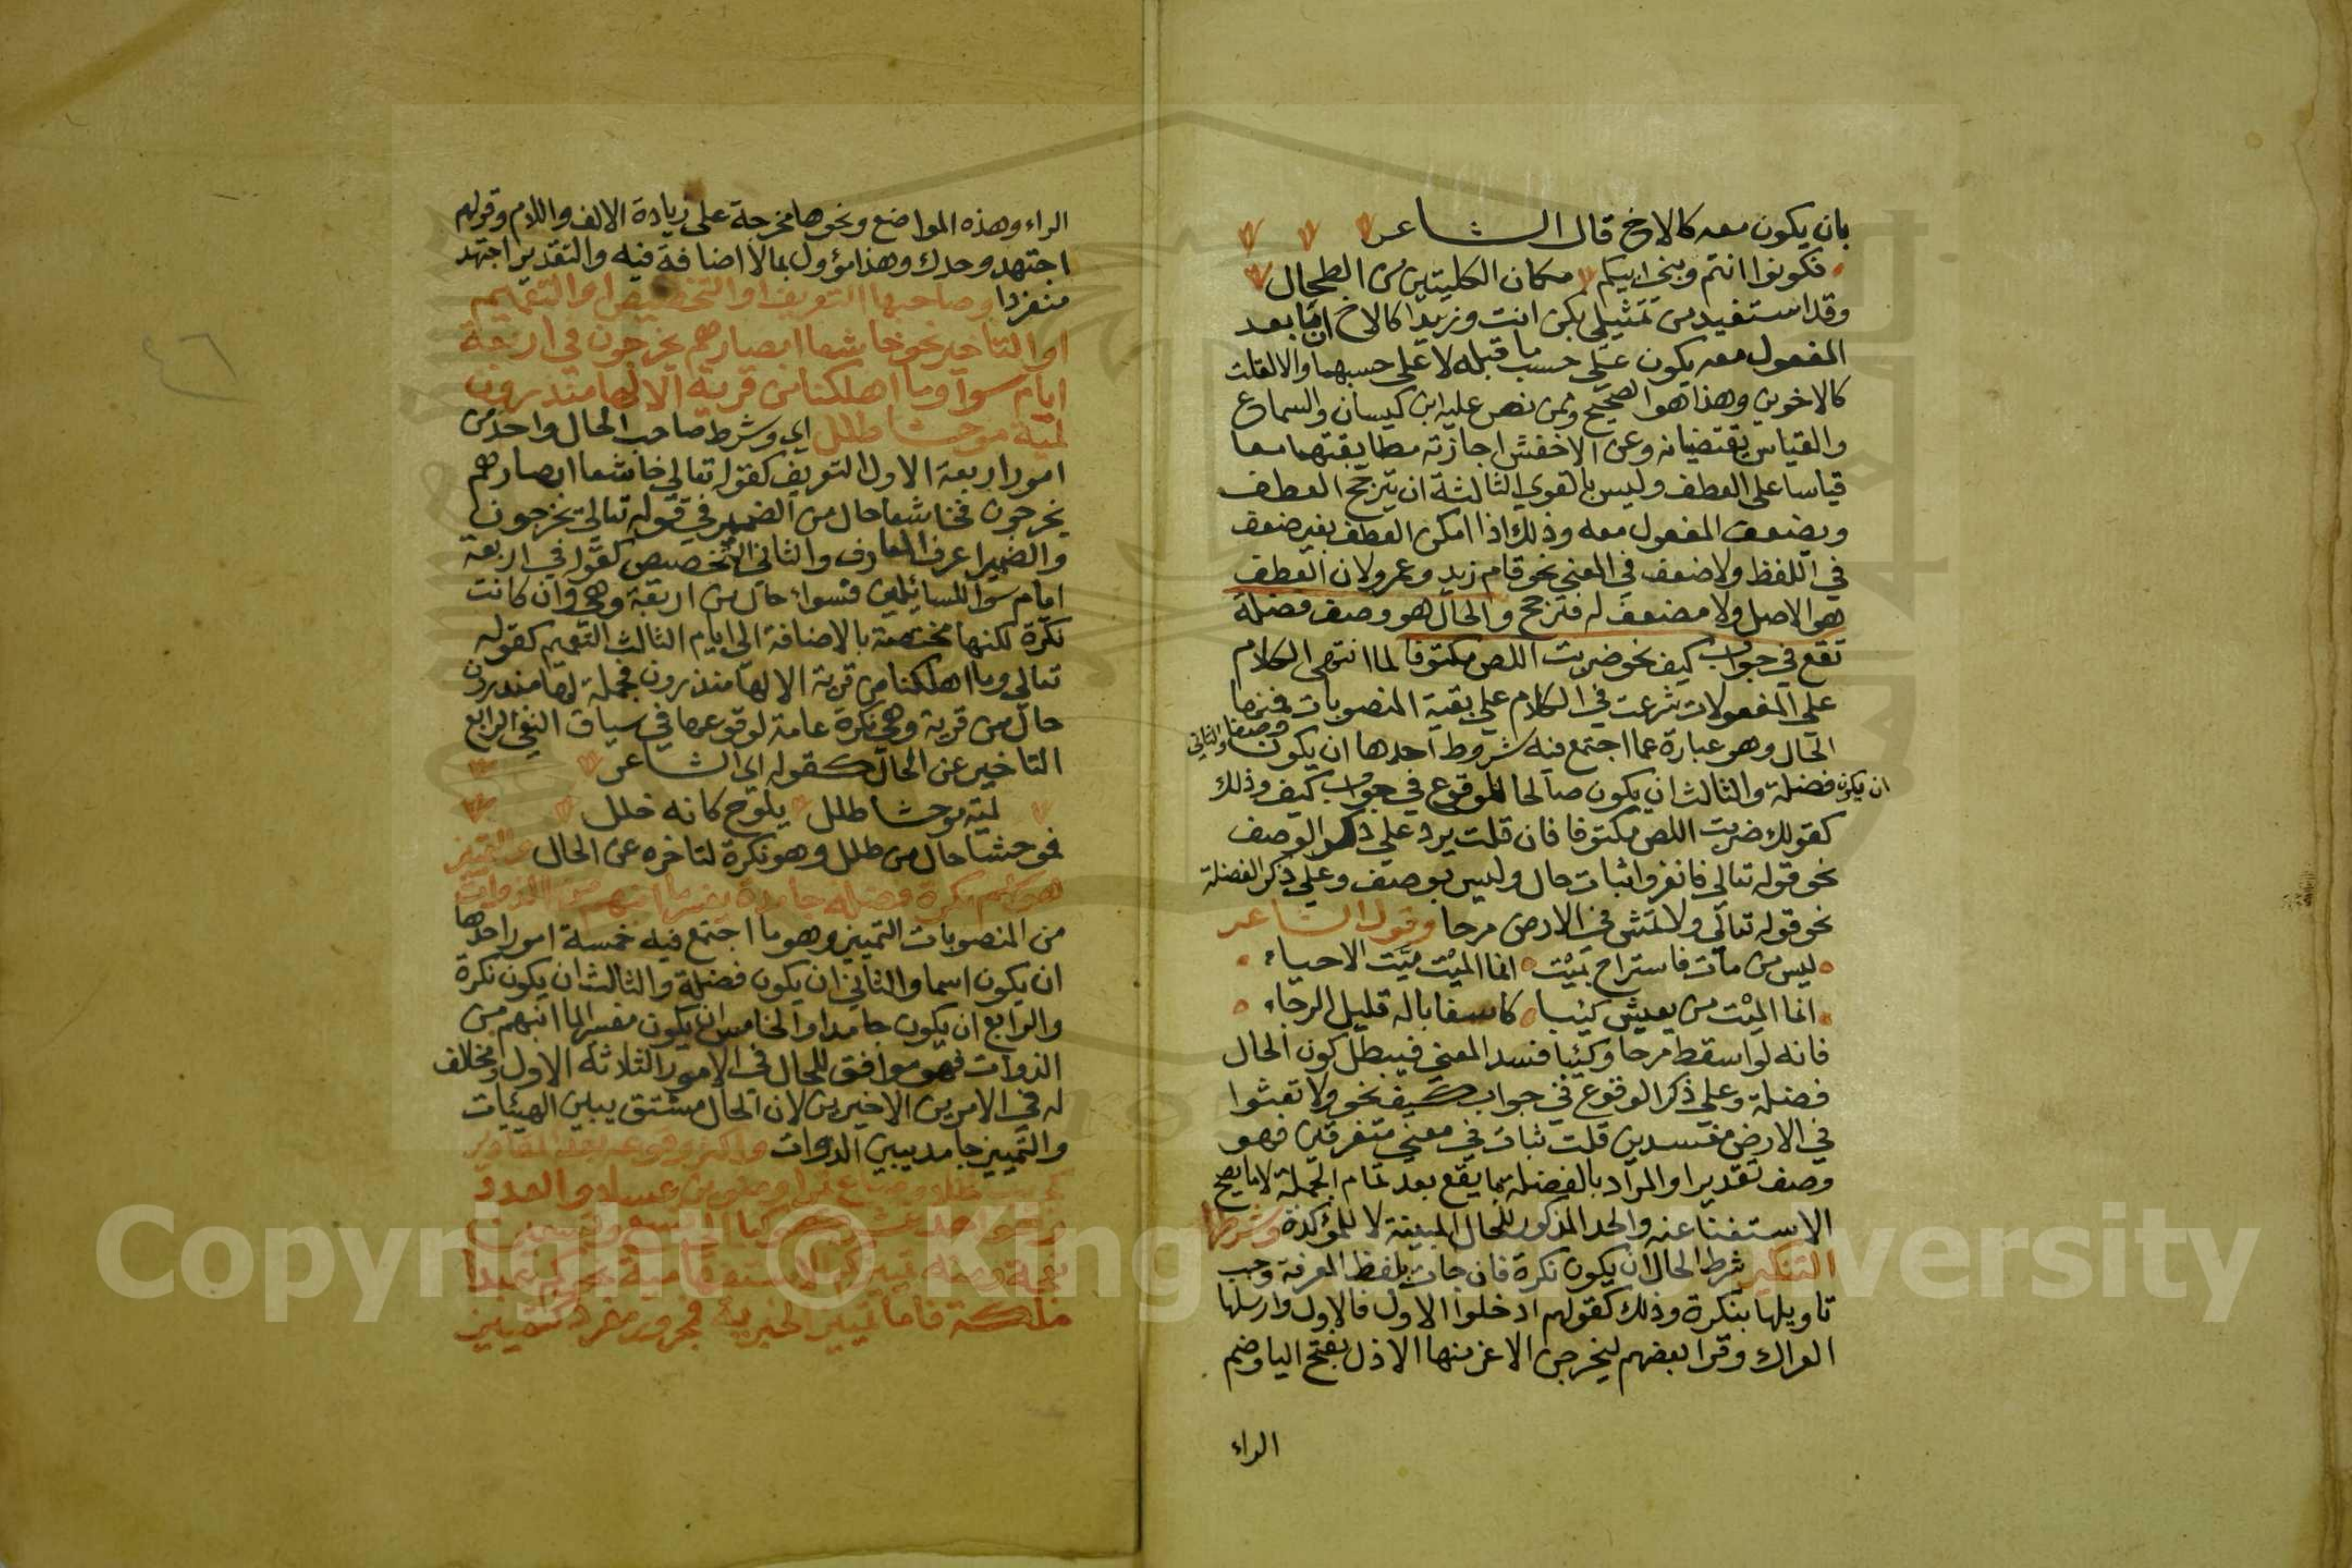 بان يكون معه كالاخ قال الشاعر
فكونوا انتم وبنى ابيكم مكان الكليتين من الطحال
وقد استفيد من تمثيلي بكن انت وزيدا كالاخ ان ما بعد
المفعول معه يكون على حسب ما قبله لا على حسبهما والا لقلت
كالاخوين وهذا هو الصحيح وممن نص عليه ابن كيسان والسماع
والقياس يقتضيانه وعن الاخفش اجازته مطابقتهما معا
قياسا على العطف وليس بالقوي الثالثة ان يترجح العطف
ويضعف المفعول معه وذلك اذا امكن العطف بغير ضعف
في اللفظ ولا ضعف في المعنى نحو قام زيد وعمرو لان العطف
هو الاصل ولا مضعف له فترجح والحال هو وصف فضلة
تقع في جواب كيف نحو ضربت اللص مكتوفا لما انتهى الكلام
على المفعولات شرعت في الكلام على بقية المنصوبات فمنها
الحال وهو عبارة عما اجتمع فيه شروط احدها ان يكون وصفا والثاني
ان يكون فضلة والثالث ان يكون صالحا للوقوع في جواب كيف وذلك
كقولك ضربت اللص مكتوفا فان قلت يرد على ذكر الوصف
نحو قوله تعالى فانفروا ثبات حال وليس بوصف وعلى ذكر الفضلة
نحو قوله تعالى ولا تمش في الارض مرحا وقول الشاعر
ليس من مات فاستراح بميْت انما الميْت ميّت الاحياء
انما الميْت من يعيش كئيبا كاسفا باله قليل الرجاء
فانه لو اسقط مرحا وكئيبا فسد المعنى فيبطل كون الحال
فضلة وعلى ذكر الوقوع في جواب كيف نحو ولا تعثوا
في الارض مفسدين قلت ثبات في معنى متفرقين فهو
وصف تقديرا والمراد بالفضلة ما يقع بعد تمام الجملة لا ما يصح
الاستغنا عنه والحد المذكور للحال المبينة لا للمؤكدة وشرطها
التنكير شرط الحال ان يكون نكرة فان جات بلفظ المعرفة وجب
تاويلها بنكرة وذلك كقولهم ادخلوا الاول فالاول وارسلها
العراك وقرا بعضهم ليخرجن الاعز منها الاذل بفتح اليا وضم
الراء
الراء وهذه المواضع ونحوها مخرجة على زيادة الالف واللام وقولهم
اجتهد وحدك وهذا مؤول بما لا اضافة فيه والتقدير اجتهد
منفردا وصاحبها التعريف او التخصيص او التعميم
او التاخير نحو خاشعا ابصارهم يخرجون في اربعة
ايام سوآ وما اهلكنا من قرية الا لها منذرون
لمية موحشا طلل اي وشرط صاحب الحال واحد من
امور اربعة الاول التعريف كقوله تعالى خاشعا ابصارهم
يخرجون فخاشعا حال من الضمير في قوله تعالى يخرجون
والضمير اعرف المعارف والثاني التخصيص كقوله في اربعة
ايام سوا للسائلين فسواء حال من اربعة وهي وان كانت
نكرة لكنها مختصة بالاضافة الى ايام الثالث التعميم كقوله
تعالى وما اهلكنا من قرية الا لها منذرون فجملة لها منذرون
حال من قرية وهي نكرة عامة لوقوعها في سياق النفي الرابع
التاخير عن الحال كقوله اي الشاعر
لمية موحشا طلل يلوح كانه خلل
فموحشا حال من طلل وهو نكرة لتاخره عن الحال والتمييز
هو اسم نكرة فضلة جامدة يفسر ما انبهم من الذوات
من المنصوبات التمييز وهو ما اجتمع فيه خمسة امور احدها
ان يكون اسما والثاني ان يكون فضلة والثالث ان يكون نكرة
والرابع ان يكون جامدا والخامس ان يكون مفسرا لما انبهم من
الذوات فهو موافق للحال في الامور الثلاثة الاول ومخالف
له في الامرين الاخيرين لان الحال مشتق يبين الهيئات
والتمييز جامد يبين الذوات واكثر وقوعه بعد المقادير
كجريب نخلا وصاع تمرا ومنوين عسلا والعدد
نحو احد عشر كوكبا الى تسع وتسعين
نعجة ومنه تمييز كم الاستفهامية نحو كم عبدا
ملكت فاما تمييز الخبرية فمجرور مفرد كتمييز
٤٦
Copyright © King University